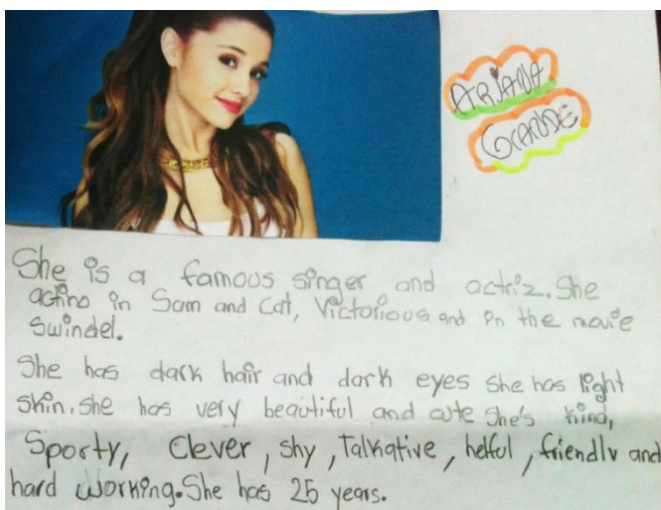 ARiANA
GRANDE
She is a famous singer and actriz. She
actino in Sam and Cat, Victorious and in the movie
Swindel.
She has dark hair and dark eyes she has light
skin. she has very beautiful and cute she's kind,
Sporty, Clever, shy, Talkative, helful, friendly and
hard working. She has 25 years.